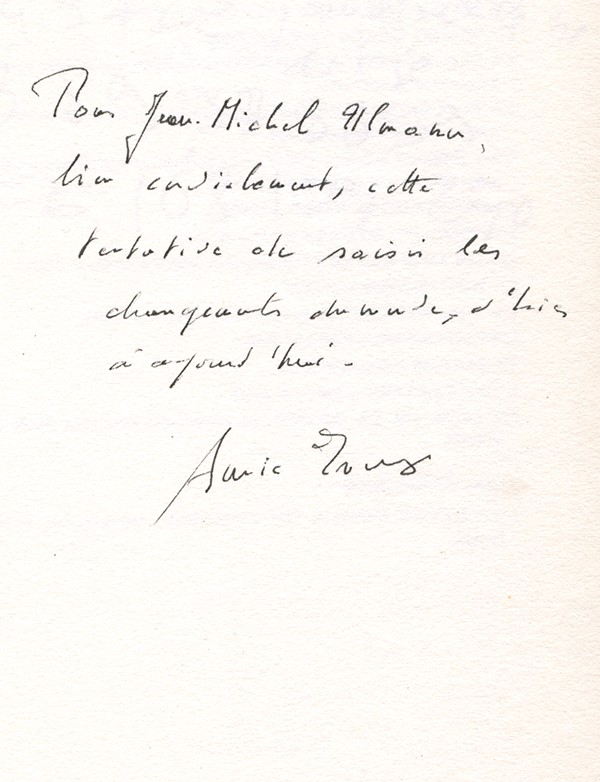 Pour Jean-Michel Ulmann,
bien cordialement, cette
tentative de saisir les
changements du monde, d'hier
à aujourd'hui -
Annie Ernaux